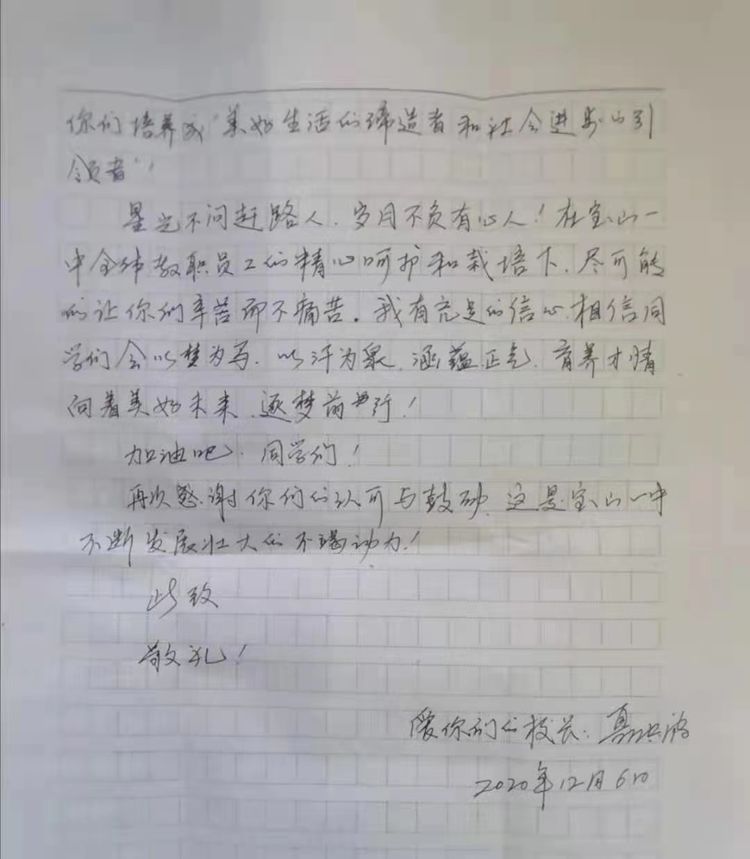 你们培养成“美好生活的缔造者和社会进步的引
领者”！
星光不问赶路人，岁月不负有心人！在宝山一
中全体教职员工的精心呵护和栽培下，尽可能
的让你们辛苦而不痛苦。我有充足的信心，相信同
学们会以梦为马，以汗为泉，涵蕴正气，育养才情
向着美好未来，逐梦前行！
加油吧，同学们！
再次感谢你们的认可与鼓励，这是宝山一中
不断发展壮大的不竭动力！
此致
敬礼！
爱你们的校长：
2020年12月6日